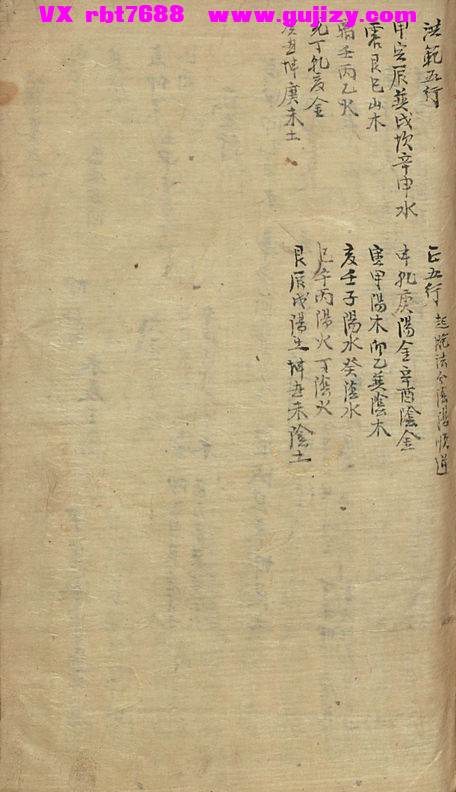 VX rbt7688 www.gujizy.com
洪範五行
甲寅辰巽戌坎辛申水
震艮巳山木
離壬丙乙火
兌丁乾亥金
癸丑坤庚未土
正五行 起院法分陰陽順逆
申乾庚陽金辛酉陰金
寅甲陽木卯乙巽陰木
亥壬子陽水癸陰水
巳午丙陽火丁陰火
艮辰戌陽土坤丑未陰土